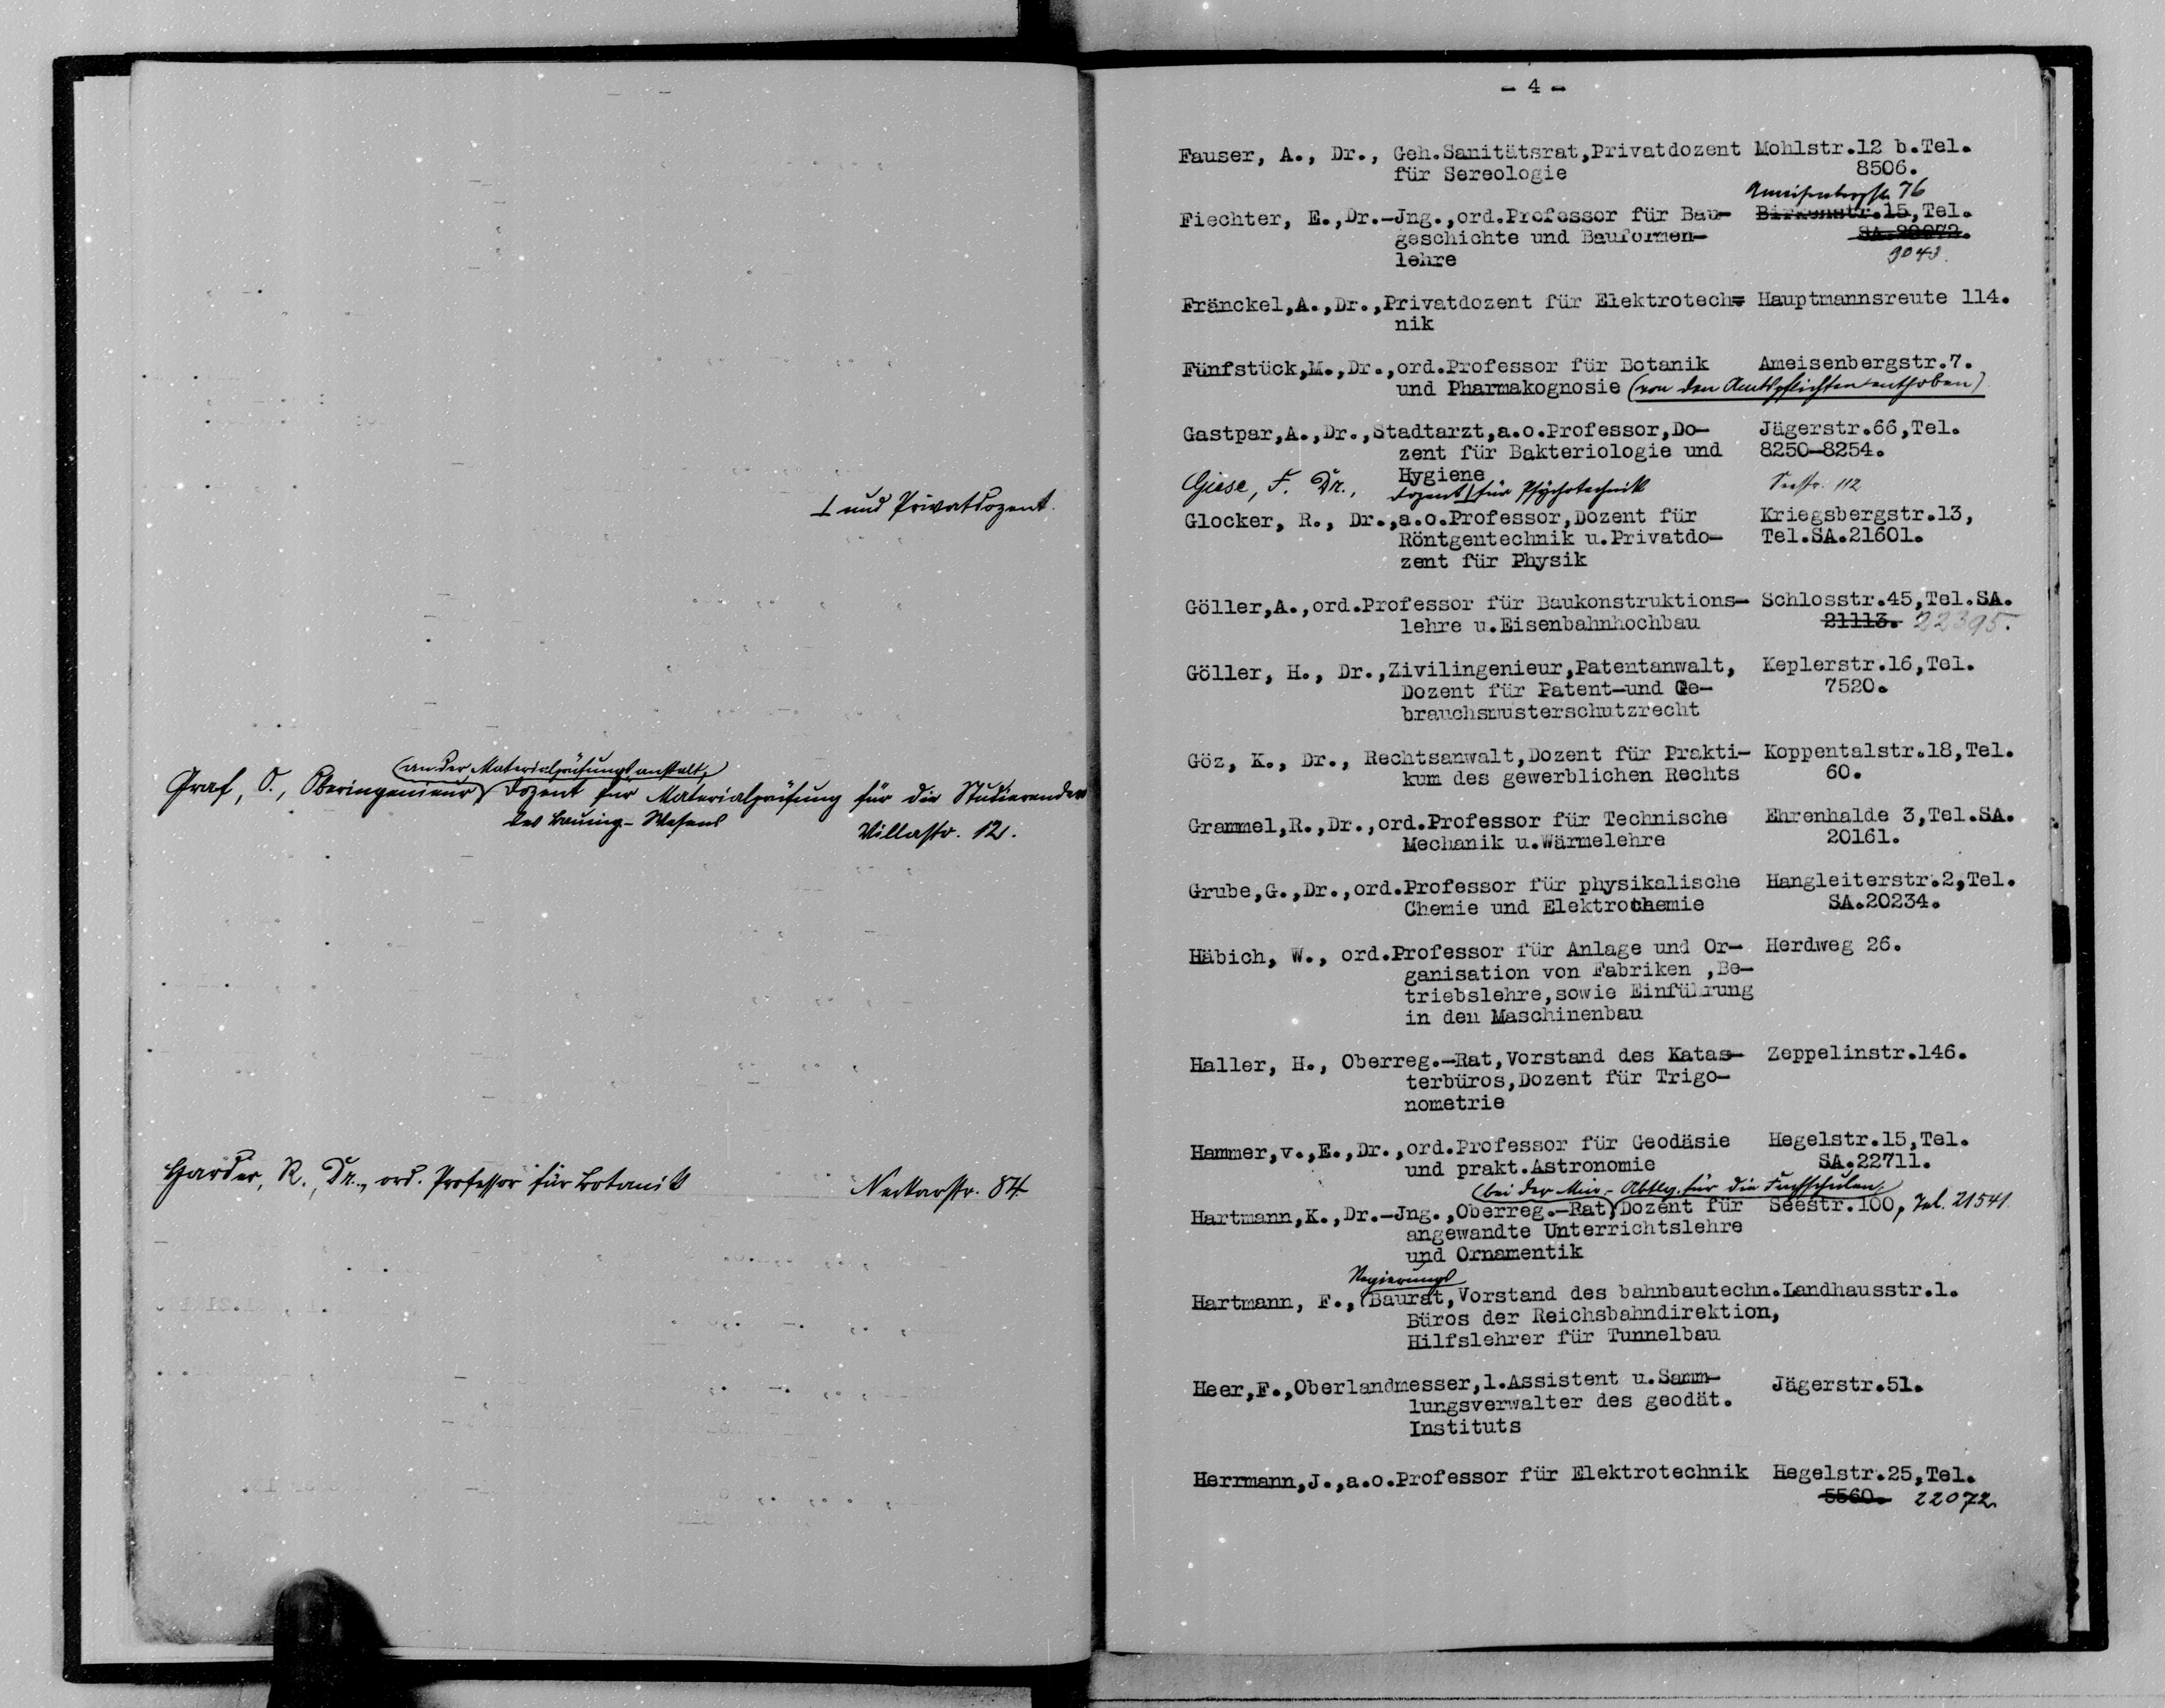 ⊥ und Privatdozent.
(an der Materialprüfungsanstalt,)
Graf, O., Oberingenieur, Dozent für Materialprüfung für die Studierenden
des Bauing.-Wesens Villastr. 12.
Harder, R., Dr., ord. Professor für Botanik Neckarstr. 84
- 4 -
Fauser, A., Dr., Geh.Sanitätsrat,Privatdozent Mohlstr.12 b.Tel.
für Sereologie 8506.
Ameisenbergstr. 76
Fiechter, E.,Dr.-Jng.,ord.Professor für Bau- Birkenstr.15,Tel.
geschichte und Bauformen- SA.20072.
lehre 9043.
Fränckel,A.,Dr.,Privatdozent für Elektrotech= Hauptmannsreute 114.
nik
Fünfstück,M.,Dr.,ord.Professor für Botanik Ameisenbergstr.7.
und Pharmakognosie (von den Amtspflichten enthoben)
Gastpar,A.,Dr.,Stadtarzt,a.o.Professor,Do- Jägerstr.66,Tel.
zent für Bakteriologie und 8250-8254.
Hygiene
Giese, F. Dr., Dozent für Psychotechnik Seestr. 112
Glocker, R., Dr.,a.o.Professor,Dozent für Kriegsbergstr.13,
Röntgentechnik u.Privatdo- Tel.SA.21601.
zent für Physik
Göller,A.,ord.Professor für Baukonstruktions- Schlosstr.45,Tel.SA.
lehre u.Eisenbahnhochbau 21113. 22395.
Göller, H., Dr.,Zivilingenieur,Patentanwalt, Keplerstr.16,Tel.
Dozent für Patent-und Ge- 7520.
brauchsmusterschutzrecht
Göz, K., Dr., Rechtsanwalt,Dozent für Prakti- Koppentalstr.18,Tel.
kum des gewerblichen Rechts 60.
Grammel,R.,Dr.,ord.Professor für Technische Ehrenhalde 3,Tel.SA.
Mechanik u.Wärmelehre 20161.
Grube,G.,Dr.,ord.Professor für physikalische Hangleiterstr.2,Tel.
Chemie und Elektrochemie SA.20234.
Häbich, W., ord.Professor für Anlage und Or- Herdweg 26.
ganisation von Fabriken ,Be-
triebslehre,sowie Einführung
in den Maschinenbau
Haller, H., Oberreg.-Rat,Vorstand des Katas- Zeppelinstr.146.
terbüros,Dozent für Trigo-
nometrie
Hammer,v.,E.,Dr.,ord.Professor für Geodäsie Hegelstr.15,Tel.
und prakt.Astronomie SA.22711.
(bei der Min.-Abtlg. für die Fachschulen,)
Hartmann,K.,Dr.-Jng.,Oberreg.-Rat,Dozent für Seestr.100, Tel. 21541
angewandte Unterrichtslehre
und Ornamentik
Regierungs
Hartmann, F.,(Baurat,Vorstand des bahnbautechn.Landhausstr.1.
Büros der Reichsbahndirektion,
Hilfslehrer für Tunnelbau
Heer,F.,Oberlandmesser,1.Assistent u.Samm- Jägerstr.51.
lungsverwalter des geodät.
Instituts
Herrmann,J.,a.o.Professor für Elektrotechnik Hegelstr.25,Tel.
5560. 22072.